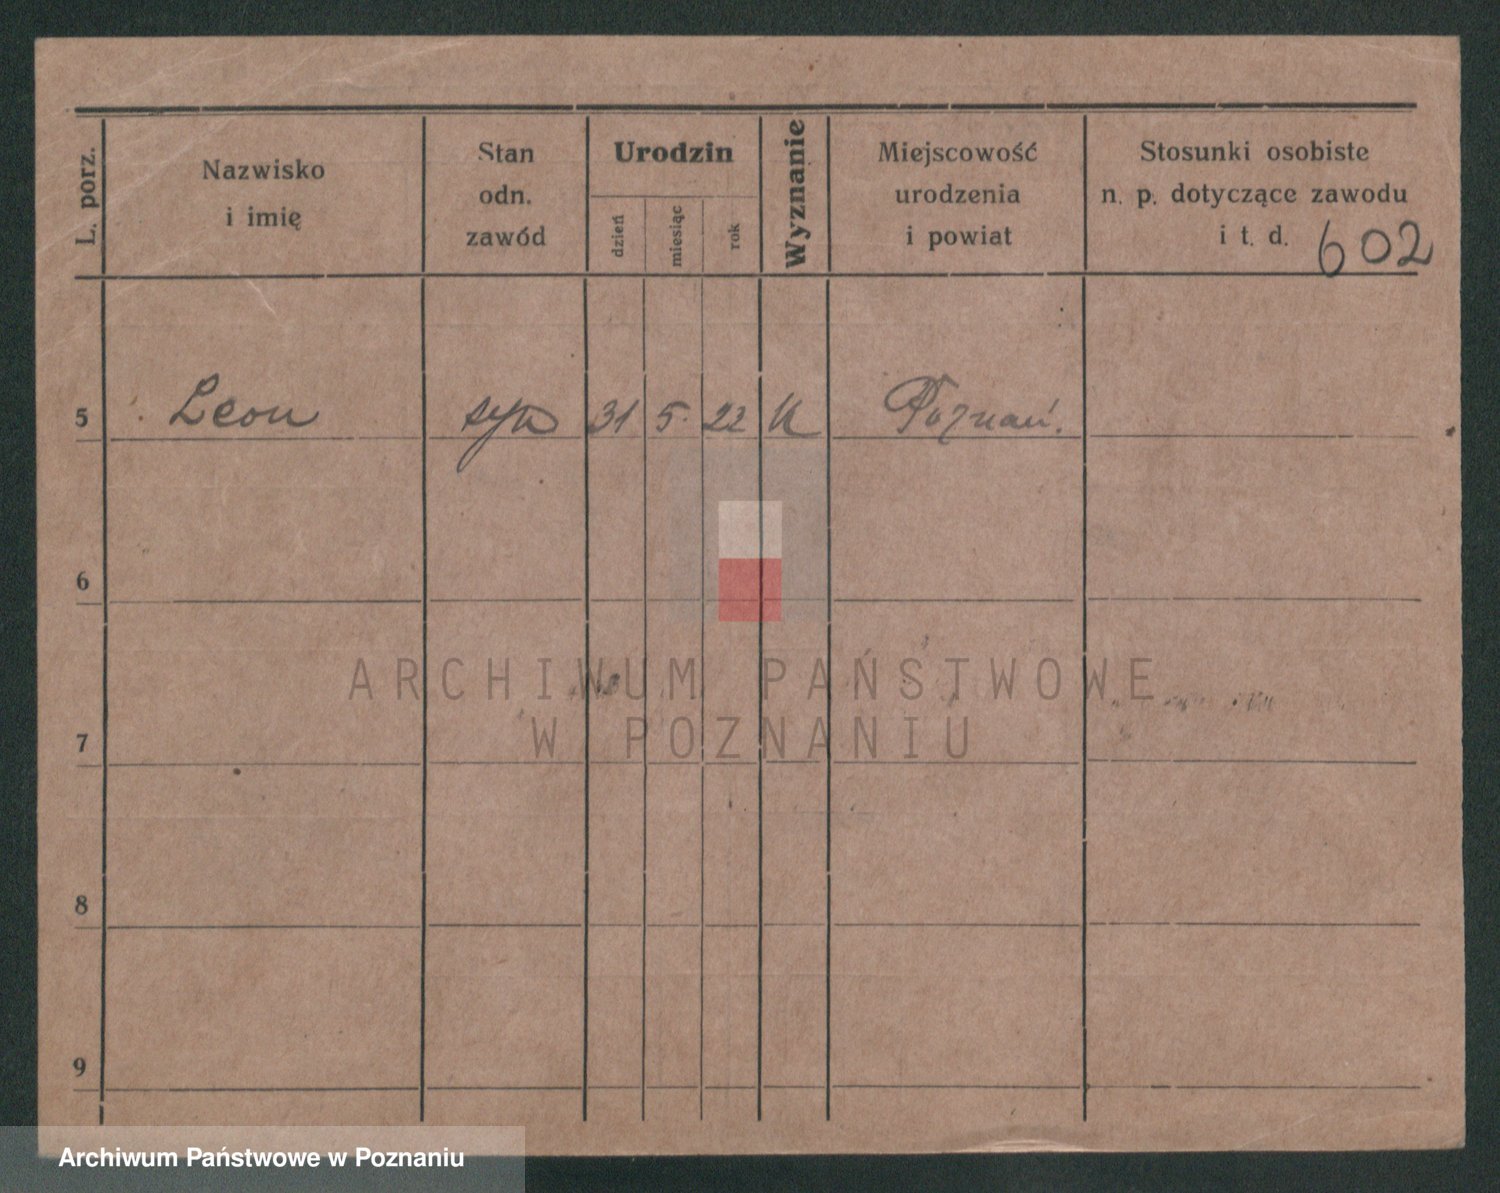 L. porz.
Nazwisko
i imię
Stan
odn.
zawód
Urodzin
dzień
miesiąc
rok
Wyznanie
Miejscowość
urodzenia
i powiat
Stosunki osobiste
n. p. dotyczące zawodu
i t. d.
602
5 Leon syn 31 5. 22 K Poznań.
6
7
8
9
ARCHIWUM PAŃSTWOWE
W POZNANIU
Archiwum Państwowe w Poznaniu